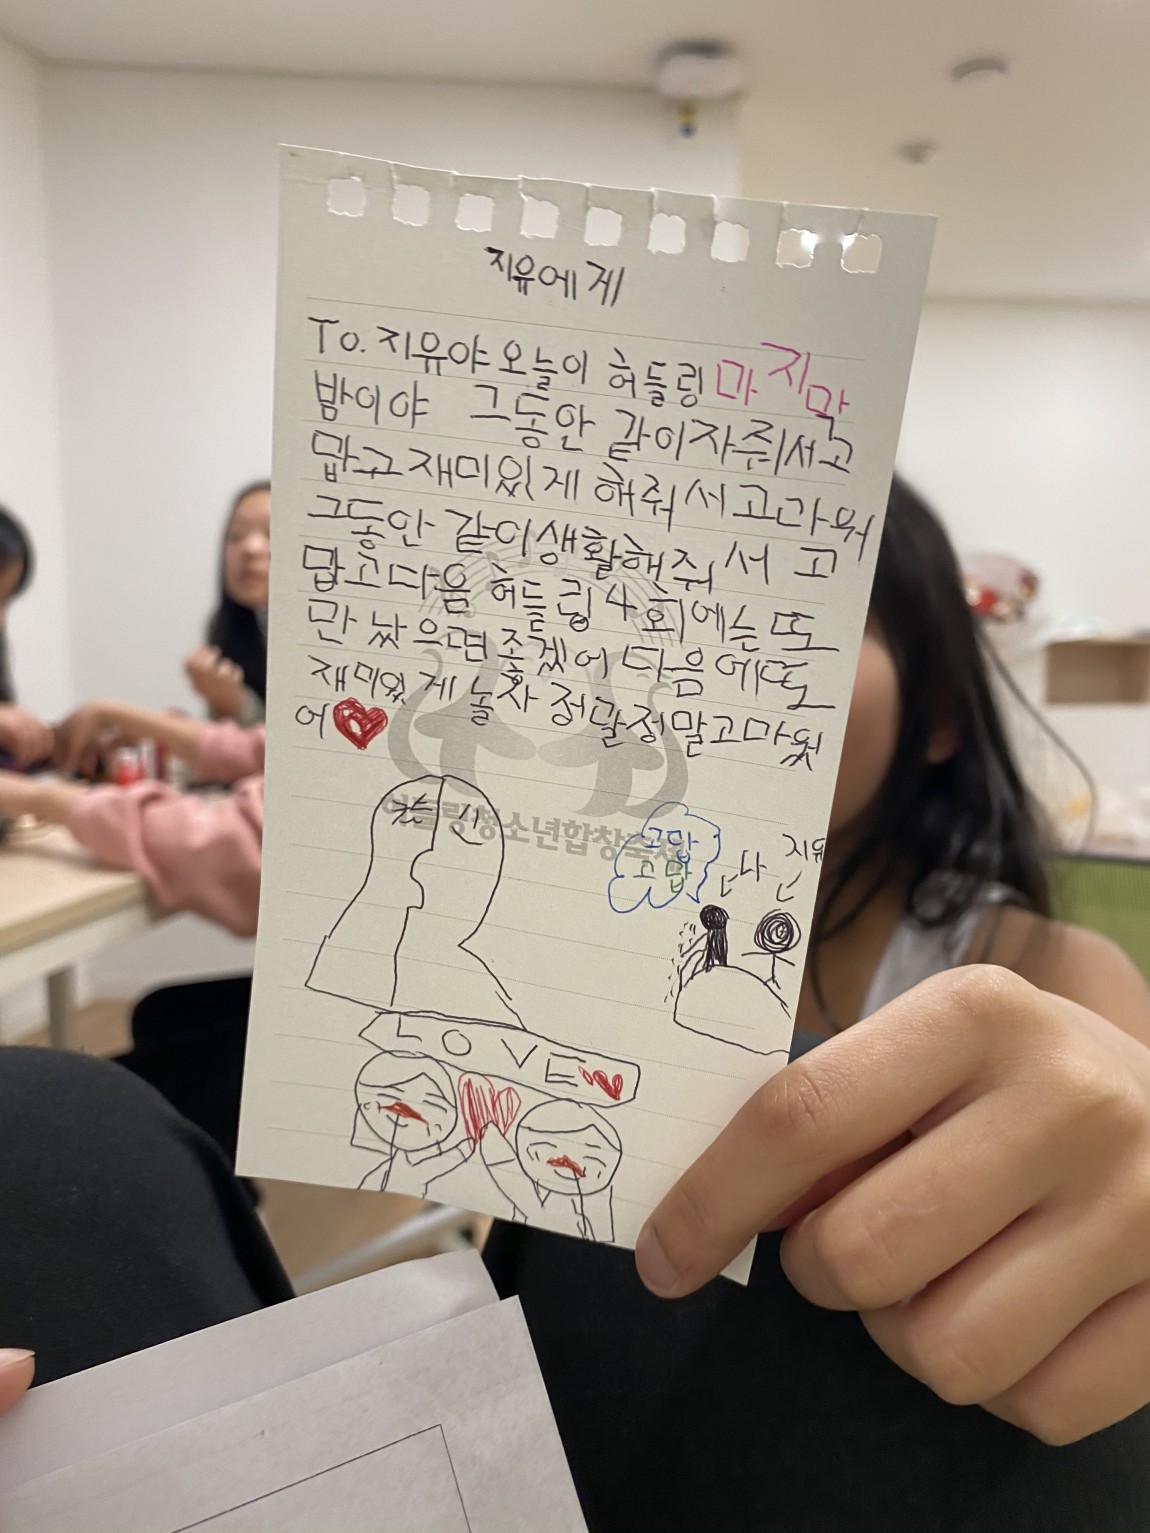 지유에게
To. 지유야 오늘이 허들링 마지막
밤이야 그동안 같이자줘서고
맙고 재미있게 해줘서고마워
그동안 같이생활해줘서 고
맙고다음 허들링4회에는또
만났으면 좋겠어 다음에또
재미있게 놀자 정말정말고마웠
어
허들링청소년합창축제
고맙
고맙
나
지유
LOVE